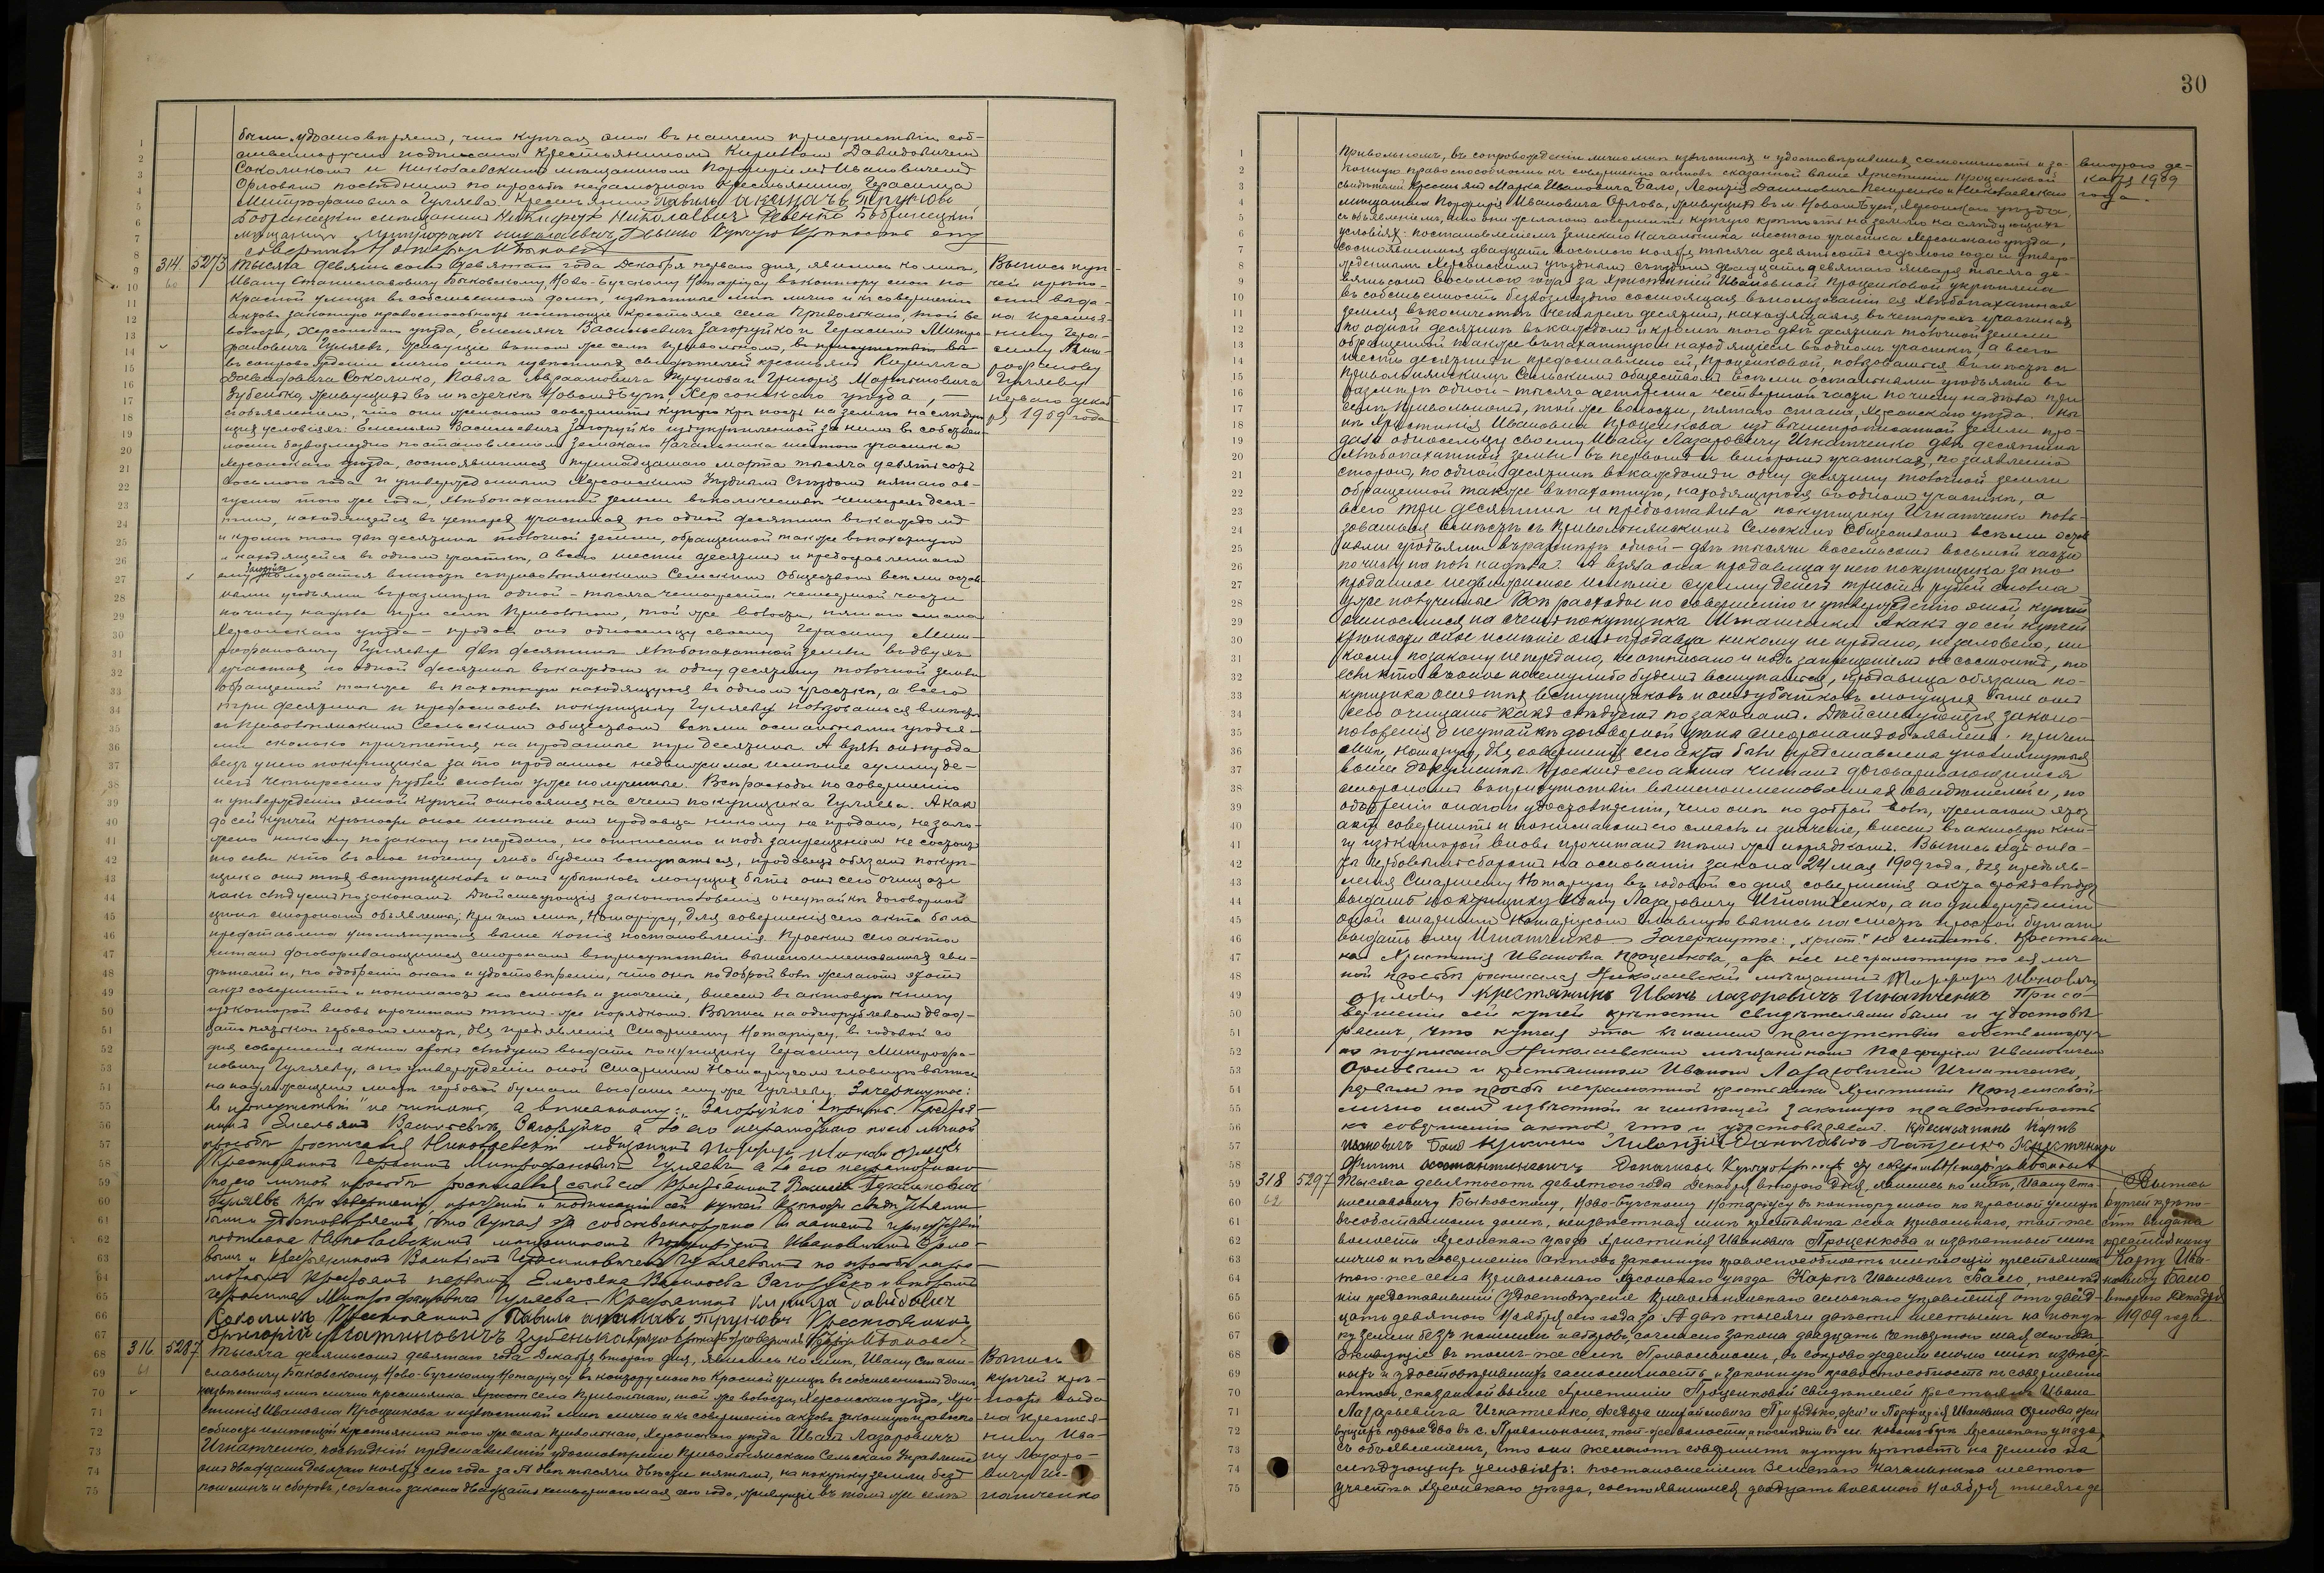 были и удостоверяем, что купчая эта въ нашемъ присутствіи соб-
ственноручно подписана крестьяниномъ Кирилломъ Давидовичемъ
Соколикомъ и Николаевскимъ мѣщаниномъ Порфиріемъ Ивановичемъ
Орловымъ послѣднимъ по просьбѣ неграмотнаго крестьянина Герасима
Митрофановича Гуляева. Крестьянинъ
Бобринецкій мѣщанинъ Никифоръ Николаевичъ Бобринецкій
мѣщанинъ Митрофанъ Николаевичъ купчую крѣпость сію
совершилъ Нотаріусъ
314 5273 Тысяча девятьсотъ девятаго года Декабря перваго дня, явились ко мнѣ,
Ивану Станиславовичу Быковскому, Ново-Бугскому Нотаріусу въ контору мою по
Красной улицѣ въ собственномъ домѣ, извѣстные мнѣ лично и къ совершенію
актовъ законную правоспособность имѣющіе крестьяне села Привольнаго, той же
волости, Херсонскаго уѣзда, Емельянъ Васильевичъ Загоруйко и Герасимъ Митро-
фановичъ Гуляевъ, живущіе въ томъ же селѣ Привольномъ, въ присутствіи въ
въ сопровожденіи лично мнѣ извѣстныхъ свидѣтелей крестьянъ Кирилла
Давидовича Соколика, Павла Авраамовича Трунова и Григорія Мартыновича
Зубенько, живущихъ въ мѣстечкѣ Новомъ Бугѣ, Херсонскаго уѣзда, —
съ объявленіемъ, что они желаютъ совершить купчую крѣпость на землю на слѣдую-
щихъ условіяхъ: Емельянъ Васильевичъ Загоруйко изъ укрѣпленной за нимъ въ собствен-
ность безвозмездно постановленіемъ Земскаго Начальника шестого участка
Херсонскаго уѣзда, состоявшимся марта тысяча девятьсотъ
восьмого года и утвержденнымъ Херсонскимъ Уѣзднымъ Съѣздомъ пятаго ав-
густа того же года, хлѣбопахатной земли въ количествѣ четырехъ деся-
тинъ, находящейся въ четырехъ участкахъ по одной десятинѣ въ каждомъ
и кромѣ того двѣ десятины толочной земли, обращенной также въ пахатную
и находящейся въ одномъ участкѣ, а всего шести десятинъ и предоставленнаго
Загоруйко
ему пользоваться вмѣстѣ съ Привольнянскимъ Сельскимъ Обществомъ всѣми осталь-
ными угодьями въ размѣрѣ одной - тысяча четвертой части
по числу надѣла при селѣ Привольномъ, той же волости, пятаго стана
Херсонскаго уѣзда - продалъ онъ односельцу своему Герасиму Мит-
рофановичу Гуляеву двѣ десятины хлѣбопахатной земли въ двухъ
участкахъ по одной десятинѣ въ каждомъ и одну десятину толочной земли
обращенной также въ пахатную находящуюся въ одномъ участкѣ, а всего
три десятины и предоставилъ покупщику Гуляеву пользоваться вмѣстѣ
съ Привольнянскимъ Сельскимъ обществомъ всѣми остальными угодья-
ми сколько причитается на проданные три десятины. А взялъ онъ прода-
вецъ у него покупщика за то проданное недвижимое имѣніе сумму де-
негъ четыреста рублей сполна уже полученные. Всѣ расходы по совершенію
и утвержденію этой купчей относятся на счетъ покупщика Гуляева. А какъ
до сей купчей крѣпости оное имѣніе отъ продавца никому не продано, не зало-
жено никому по закону не передано, не отписано и подъ запрещеніемъ не состоитъ
то если кто въ оное почему либо будетъ вступаться, продавецъ обязанъ покуп-
щика отъ тѣхъ вступщиковъ и отъ убытковъ могущихъ быть отъ сего очищать
какъ слѣдуетъ по законамъ. Дѣйствующія законоположенія о неутайкѣ договорной
цѣны сторонамъ объявлены; при чемъ мнѣ, Нотаріусу, для совершенія сего акта была
представлена упомянутая выше копія постановленія. Проектъ сего акта
читанъ договаривающимся сторонамъ въ присутствіи вышепоименованныхъ сви-
дѣтелей и, по одобреніи онаго и удостовѣреніи, что они по доброй волѣ желаютъ этотъ
актъ совершить и понимаютъ его смыслъ и значеніе, внесенъ въ актовую книгу
изъ которой вновь прочитанъ тѣмъ же порядкомъ. Выпись на однорублевомъ двад-
цати пяти коп гербовомъ листѣ, для предъявленія Старшему Нотаріусу, въ годовой со
дня совершенія акта срокъ слѣдуетъ выдать покупщику Герасиму Митрофа-
новичу Гуляеву, а по утвержденіи оной Старшимъ Нотаріусомъ главную выпись
на надлежащемъ листѣ гербовой бумаги выдать ему же Гуляеву. Зачеркнутое:
„въ присутствіи" не читать, а вписанному: „Загоруйко" вѣрить. Крестья-
нинъ Емельянъ Васильевичъ Загоруйко, а за его неграмотного по его личной
просьбѣ росписался Николаевскій мѣщанинъ Порфирій Иванов Орловъ
Крестьянинъ Герасимъ Митрофановичъ Гуляевъ а за его неграмотнаго
по его личной просьбѣ росписался сынъ его крестьянинъ Василій Герасимовичъ
Гуляевъ. При совершеніи, прочтеніи и подписаніи сей купчей крѣпости свидѣтелями
были и удостовѣряемъ, что купчая эта собственноручно въ нашемъ присутствіи
подписана Николаевскимъ мѣщаниномъ Порфиріемъ Ивановичемъ Орло-
вымъ и крестьяниномъ Василіемъ Герасимовичемъ Гуляевымъ по просьбѣ негра-
мотныхъ крестьянъ первымъ Емельяна Васильева Загоруйко и вторымъ
Герасима Митрофановича Гуляева. Крестьянинъ Кирила Давидович
Соколикъ Крестьянинъ Павилъ Труновъ Крестьянинъ
Григорій Мартиновичъ Зубенька Купчую крѣпость сію совершилъ Нотаріусъ
316 5287 Тысяча девятьсотъ девятаго года Декабря второго дня, явились ко мнѣ, Ивану Стани-
славовичу Быковскому, Ново-Бугскому Нотаріусу въ контору мою по Красной улицѣ въ собственномъ домѣ
неизвѣстная мнѣ лично крестьянка Христ села Привольнаго, той же волости, Херсонскаго уѣзда, Хри-
стинія Ивановна Проценкова и извѣстный мнѣ лично и къ совершенію актовъ законную правоспо-
собность имѣющій крестьянинъ того же села Привольнаго, Херсонскаго уѣзда Иванъ Лазаровичъ
Игнатченко, послѣдній представившій удостовѣреніе Привольнянскаго Сельскаго Управленія
отъ двадцать девятаго ноября сего года за № двѣ тысячи двѣсти пятымъ, на покупку земли безъ
пошлинъ и сборовъ, согласно закона двадцать четвертаго мая сего года, живущіе въ томъ же селѣ
Выпись куп-
чей крѣпо-
сти выда-
на крестья-
нину Гера-
симу Мит-
рофанову
Гуляеву
перваго декаб-
ря 1909 года
Выпись
купчей крѣ-
пости выда-
на крестья-
нину Ива-
ну Лазаро-
вичу Иг-
натченко
30
Привольномъ, въ сопровожденіи лично мнѣ извѣстныхъ и удостовѣрившихъ самоличность и за-
конную правоспособность къ совершенію актовъ сказанной выше Христиніи Проценковой
свидѣтелей крестьянъ Марка Ивановича Бало, Леонтія Даниловича Пащенко и Николаевскаго
мѣщанина Порфирія Ивановича Орлова, живущихъ въ м. Новомъ Бугѣ, Херсонскаго уѣзда,
съ объявленіемъ, что они желаютъ совершить купчую крѣпость на землю на слѣдующихъ
условіяхъ: постановленіемъ Земскаго Начальника шестого участка Херсонскаго уѣзда,
состоявшимся двадцать восьмого ноября тысяча девятьсотъ седьмого года и утверж-
деннымъ Херсонскимъ уѣзднымъ съѣздомъ двадцать девятаго января тысяча де-
вятьсотъ восьмого года за Христиніей Ивановной Проценковой укрѣплена
въ собственность безвозмездно состоящая въ пользованіи ея хлѣбопахатная
земля въ количествѣ четырехъ десятинъ, находящаяся въ четырехъ участкахъ
по одной десятинѣ въ каждомъ и кромѣ того двѣ десятины толочной земли
обращенной также въ пахатную и находящейся въ одномъ участкѣ, а всего
шесть десятинъ и предоставлено ей, Проценковой, пользоваться вмѣстѣ съ
Привольнянскимъ Сельскимъ обществомъ всѣми остальными угодьями въ
размѣрѣ одной - тысяча четыреста четвертой части по числу надѣла при
селѣ Привольномъ, той же волости, пятаго стана, Херсонскаго уѣзда. Ны-
нѣ Христинія Ивановна Проценкова изъ вышеописанной земли про-
дала односельцу своему Ивану Лазаровичу Игнатченко двѣ десятины
хлѣбопахатной земли въ первомъ и второмъ участкахъ, по заявленію
сторонъ, по одной десятинѣ въ каждомъ и одну десятину толочной земли
обращенной также въ пахатную, находящуюся въ одномъ участкѣ, а
всего три десятины и предоставила покупщику Игнатченко поль-
зоваться вмѣстѣ съ Привольнянскимъ Сельскимъ Обществомъ всѣми осталь-
ными угодьями въ размѣрѣ одной - двѣ тысячи восемьсотъ восьмой части
по числу на полъ надѣла. А взяла она продавица у него покупщика за то
проданное недвижимое имѣніе сумму денегъ триста рублей сполна
уже полученные. Всѣ расходы по совершенію и утвержденію этой купчей
относятся на счетъ покупщика Игнатченко. А какъ до сей купчей
крѣпости оное имѣніе отъ продавца никому не продано, не заложено, ни-
кому по закону не передано, не отписано и подъ запрещеніемъ не состоитъ, то
если кто въ оное почему либо будетъ вступаться, продавица обязана по-
купщика отъ тѣхъ вступщиковъ и отъ убытковъ могущихъ быть отъ
сего очищать какъ слѣдуетъ по законамъ. Дѣйствующія законо-
положенія о неутайкѣ договорной цѣны сторонамъ объявлены; при чемъ
мнѣ, Нотаріусу, для совершенія сего акта были представлены упомянутые
выше документы. Проектъ сего акта читанъ договаривающимся
сторонамъ въ присутствіи вышепоименованныхъ свидѣтелей и, по
одобреніи онаго и удостовѣреніи, что они по доброй волѣ, желаютъ этотъ
актъ совершить и понимаютъ его смыслъ и значеніе, внесенъ въ актовую кни-
гу изъ которой вновь прочитанъ тѣмъ же порядкомъ. Выпись
гербовымъ сборомъ на основаніи закона 24 мая 1909 года, для предъяв-
ленія Старшему Нотаріусу въ годовой со дня совершенія акта срокъ слѣдуетъ
выдать покупщику Ивану Лазаровичу Игнатченко, а по утвержденіи
оной старшимъ Нотаріусомъ главную выпись на листѣ простой бумаги
выдать ему Игнатченко. Зачеркнутое: „Христ." не читать. Крестьян-
ка Христинія Ивановна Проценкова, а за нее неграмотную по ея лич-
ной просьбѣ росписался Николаевскій мѣщанинъ Порфирій Ивановъ
Орловъ, крестянинъ Иванъ Лазоровичъ Игнатченко При со-
вершеніи сей купчей крѣпости свидѣтелями были и удостовѣ-
ряемъ, что купчая эта въ нашемъ присутствіи собственноруч-
но подписана Николаевскимъ мѣщаниномъ Порфиріемъ Ивановичемъ
Орловымъ и крестьяниномъ Иваномъ Лазаровичемъ Игнатченко,
первымъ по просьбѣ неграмотной крестьянки Христиніи Проценковой
лично намъ извѣстной и имѣющей законную правоспособность
къ совершенію актовъ что и удостовѣряемъ. Крестьянинъ
Ивановичъ Крестянинъ
Купчую крѣпость сію совершилъ Нотаріусъ
318 5297 Тысяча девятьсотъ девятого года Декабря второго дня, явились ко мнѣ, Ивану Ста-
ниславовичу Быковскому, Ново-Бугскому Нотаріусу въ контору мою по Красной улицѣ
въ собственномъ домѣ, неизвѣстная мнѣ крестьянка села Привольнаго, той-же
волости Херсонскаго уѣзда Христинія Ивановна Проценкова и извѣстный мнѣ
лично и къ совершенію актовъ законную правоспособность имѣющій крестьянинъ
того-же села Привольнаго Херсонскаго уѣзда Карпъ Ивановичъ Бало, послѣд-
ній представившій удостовѣреніе Привольнянскаго сельскаго управленія отъ двад-
цать девятаго Ноября сего года за № двѣ тысячи двѣсти шестымъ на покуп-
ку земли безъ пошлинъ и сборовъ, согласно закона двадцать четвертаго мая сего года
живущіе въ томъ-же селѣ Привольномъ, въ сопровожденіи лично мнѣ извѣст-
ныхъ и удостовѣрившихъ самоличность и законную правоспособность къ совершенію
актовъ, сказанной выше Христиніи Проценковой свидѣтелей крестьянъ Ивана
Лазарьевича Игнатченко, Федора Михайловича Приходько, и Порфирія Ивановича Орлова жи-
вущихъ первые два въ с. Привольномъ, той-же волости, а послѣдній въ м. Новомъ-Бугѣ Херсонскаго уѣзда,
съ объявленіемъ, что они желаютъ совершить купчую крѣпость на землю на
слѣдующихъ условіяхъ: постановленіемъ Земскаго Начальника шестого
участка Херсонскаго уѣзда, состоявшимся двадцать восьмого Ноября тысяча де-
второго де-
кабря 1909
года.
Выпись
купчей крѣпо-
сти выдана
крестьянину
Карпу Ива-
новичу Бало
второго Декабря
1909 года.